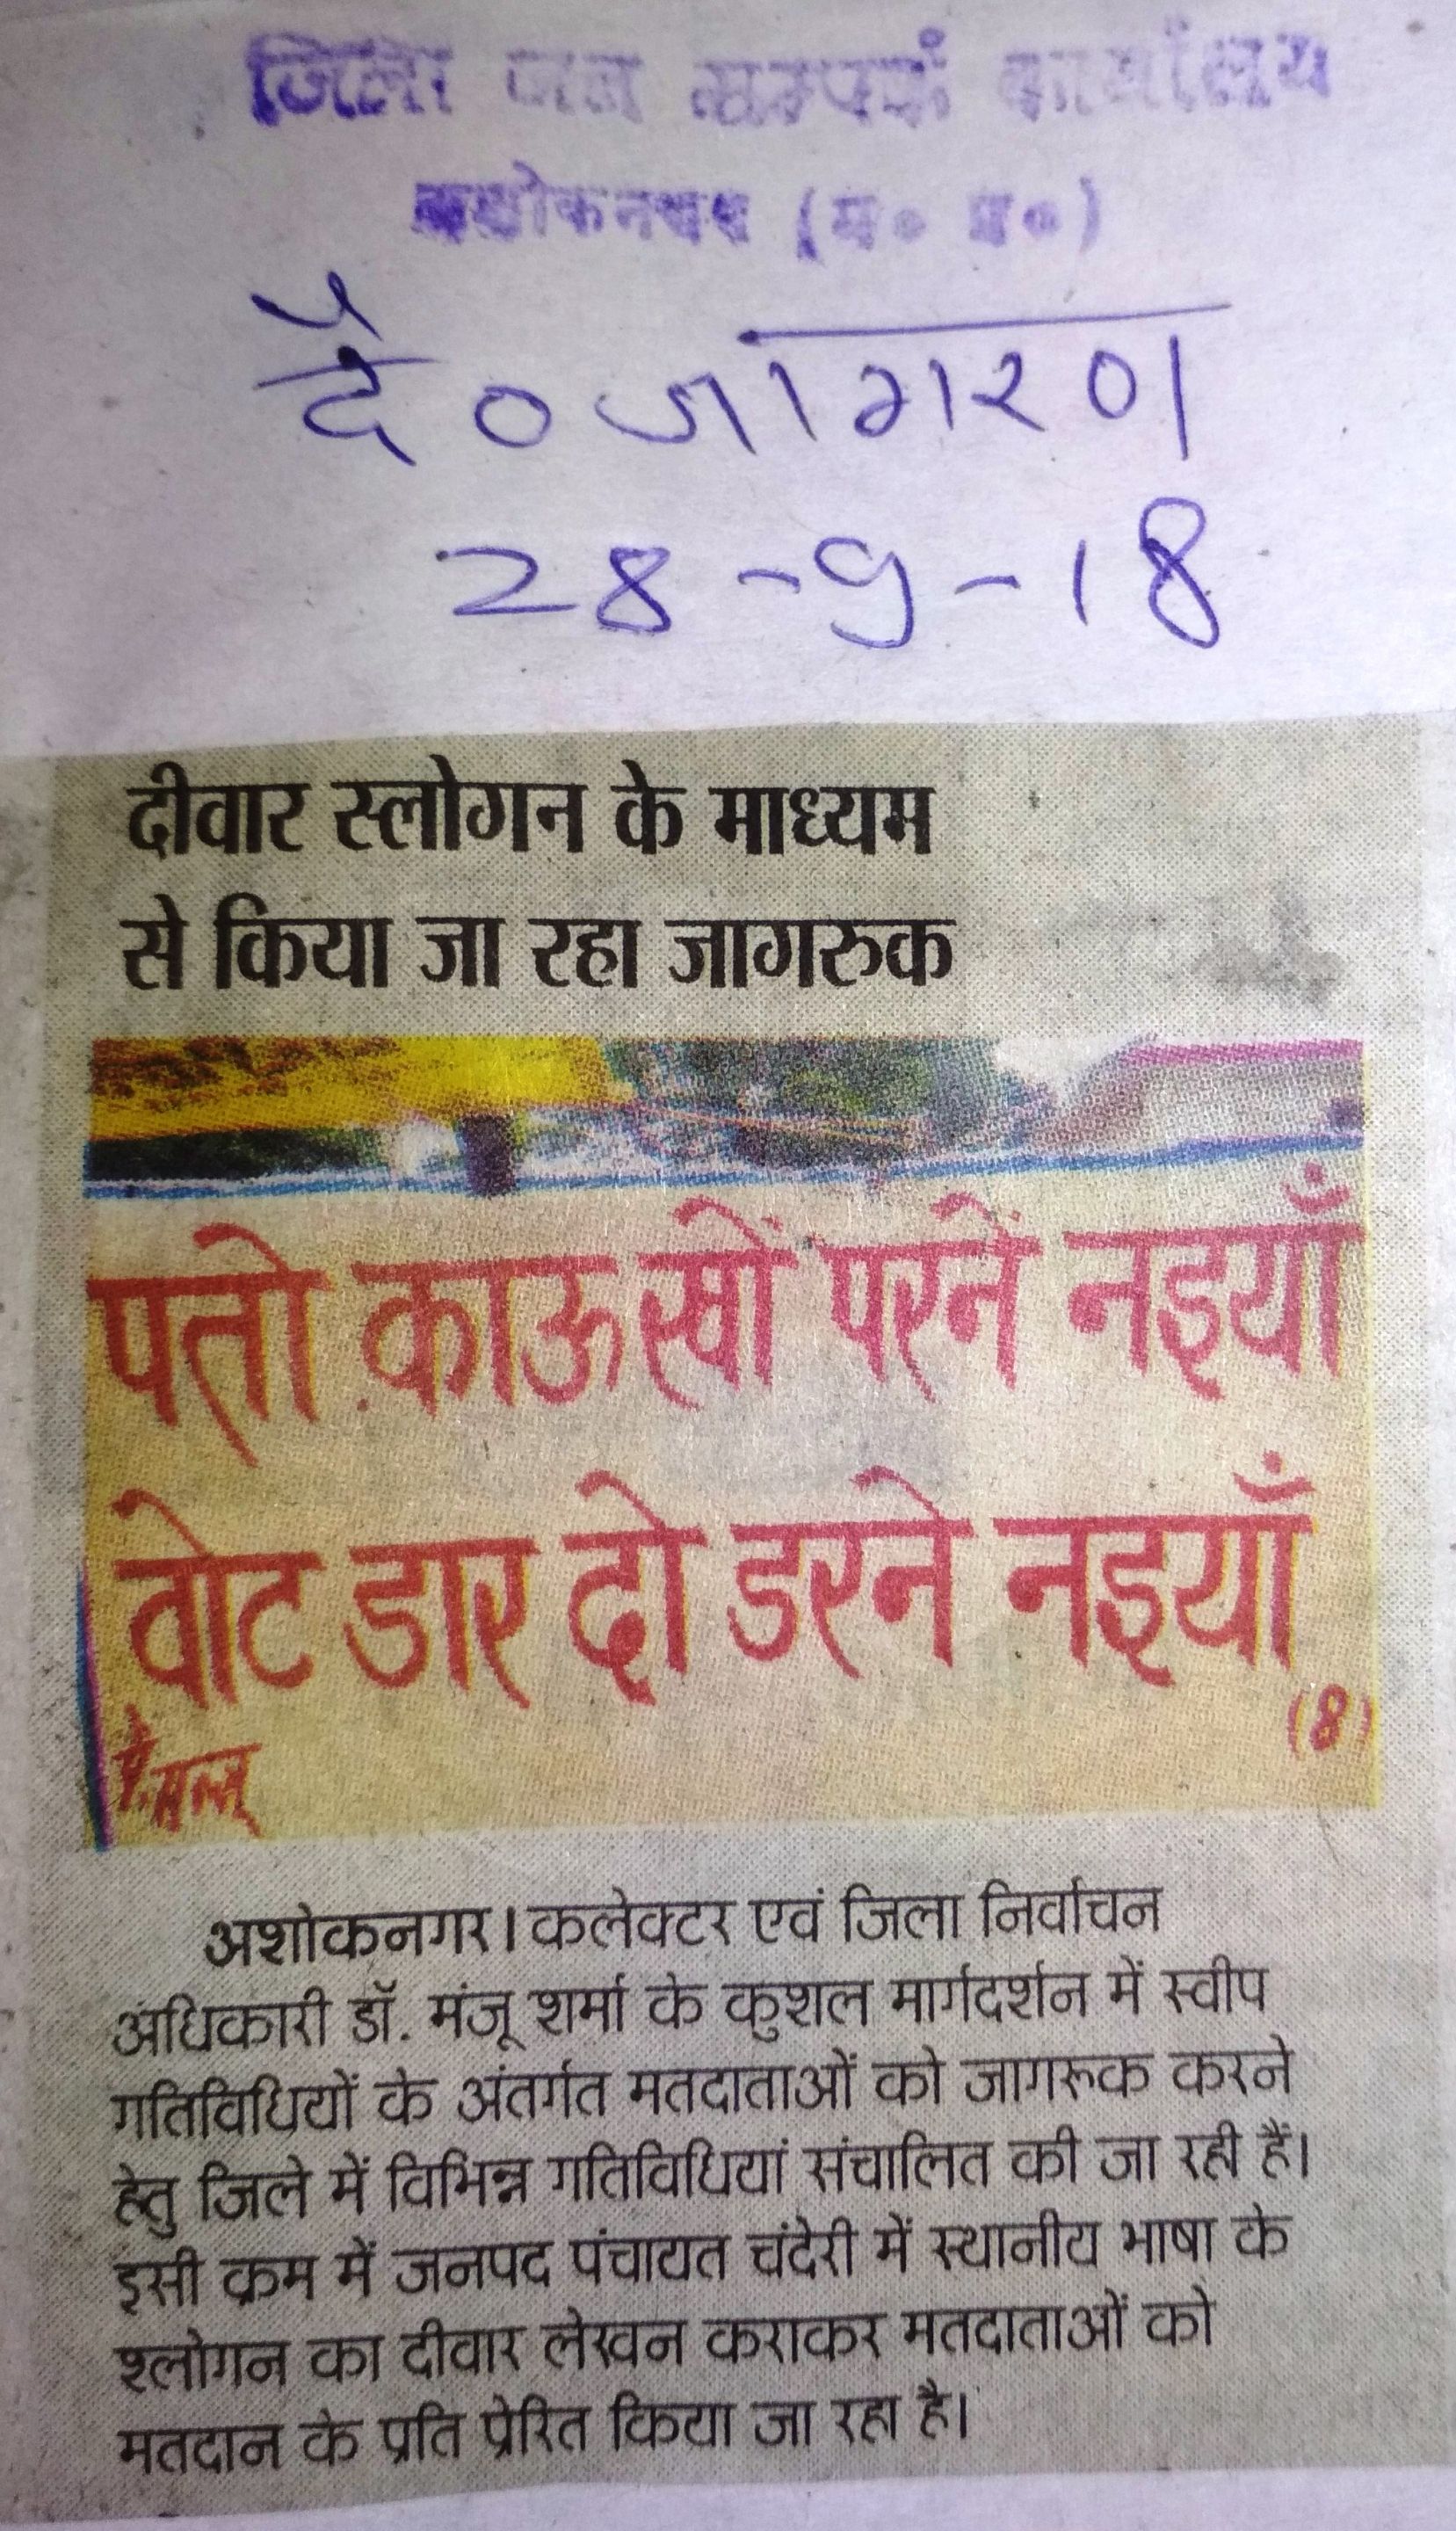 जिला जन सम्पर्क कार्यालय
अशोकनगर (म० प्र०)
दै० जागरण
28-9-18
दीवार स्लोगन के माध्यम
से किया जा रहा जागरुक
पतो काऊखों परनें नइयाँ
वोट डार दो डरने नइयाँ
(8)
अशोकनगर। कलेक्टर एवं जिला निर्वाचन
अधिकारी डॉ. मंजू शर्मा के कुशल मार्गदर्शन में स्वीप
गतिविधियों के अंतर्गत मतदाताओं को जागरूक करने
हेतु जिले में विभिन्न गतिविधियां संचालित की जा रही हैं।
इसी क्रम में जनपद पंचायत चंदेरी में स्थानीय भाषा के
श्लोगन का दीवार लेखन कराकर मतदाताओं को
मतदान के प्रति प्रेरित किया जा रहा है।